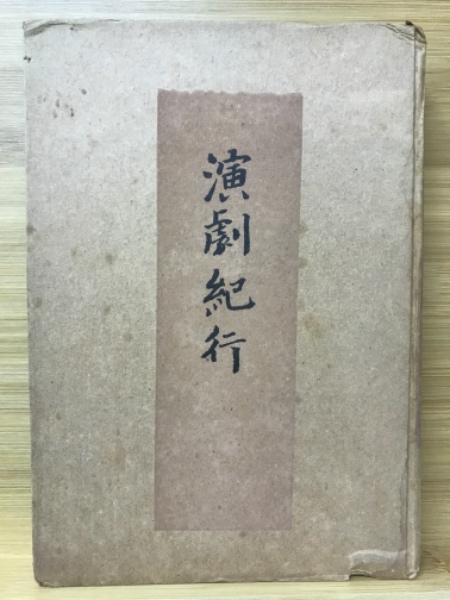 演劇紀行